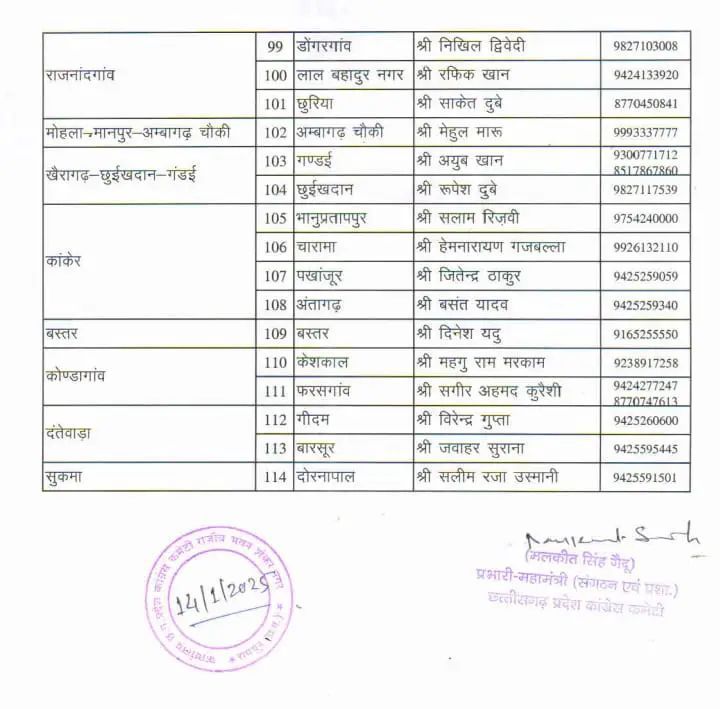 99 डोंगरगांव श्री निखिल द्विवेदी 9827103008
राजनांदगांव 100 लाल बहादुर नगर श्री रफिक खान 9424133920
101 छुरिया श्री साकेत दुबे 8770450841
मोहला-मानपुर-अम्बागढ़ चौकी 102 अम्बागढ़ चौकी श्री मेहुल मारू 9993337777
खैरागढ़-छुईखदान-गंडई 103 गण्डई श्री अयुब खान 9300771712
8517867860
104 छुईखदान श्री रूपेश दुबे 9827117539
105 भानुप्रतापपुर श्री सलाम रिज़वी 9754240000
कांकेर 106 चारामा श्री हेमनारायण गजबल्ला 9926132110
107 पखांजूर श्री जितेन्द्र ठाकुर 9425259059
108 अंतागढ़ श्री बसंत यादव 9425259340
बस्तर 109 बस्तर श्री दिनेश यदु 9165255550
कोण्डागांव 110 केशकाल श्री महगु राम मरकाम 9238917258
111 फरसगांव श्री सगीर अहमद कुरैशी 9424277247
8770747613
दंतेवाड़ा 112 गीदम श्री विरेन्द्र गुप्ता 9425260600
113 बारसूर श्री जवाहर सुराना 9425595445
सुकमा 114 दोरनापाल श्री सलीम रजा उस्मानी 9425591501
प्रदेश कांग्रेस कमेटी राजीव भवन शंकर नगर
14/1/2025
(मलकीत सिंह गैदू)
प्रभारी-महामंत्री (संगठन एवं प्रशा.)
छत्तीसगढ़ प्रदेश कांग्रेस कमेटी